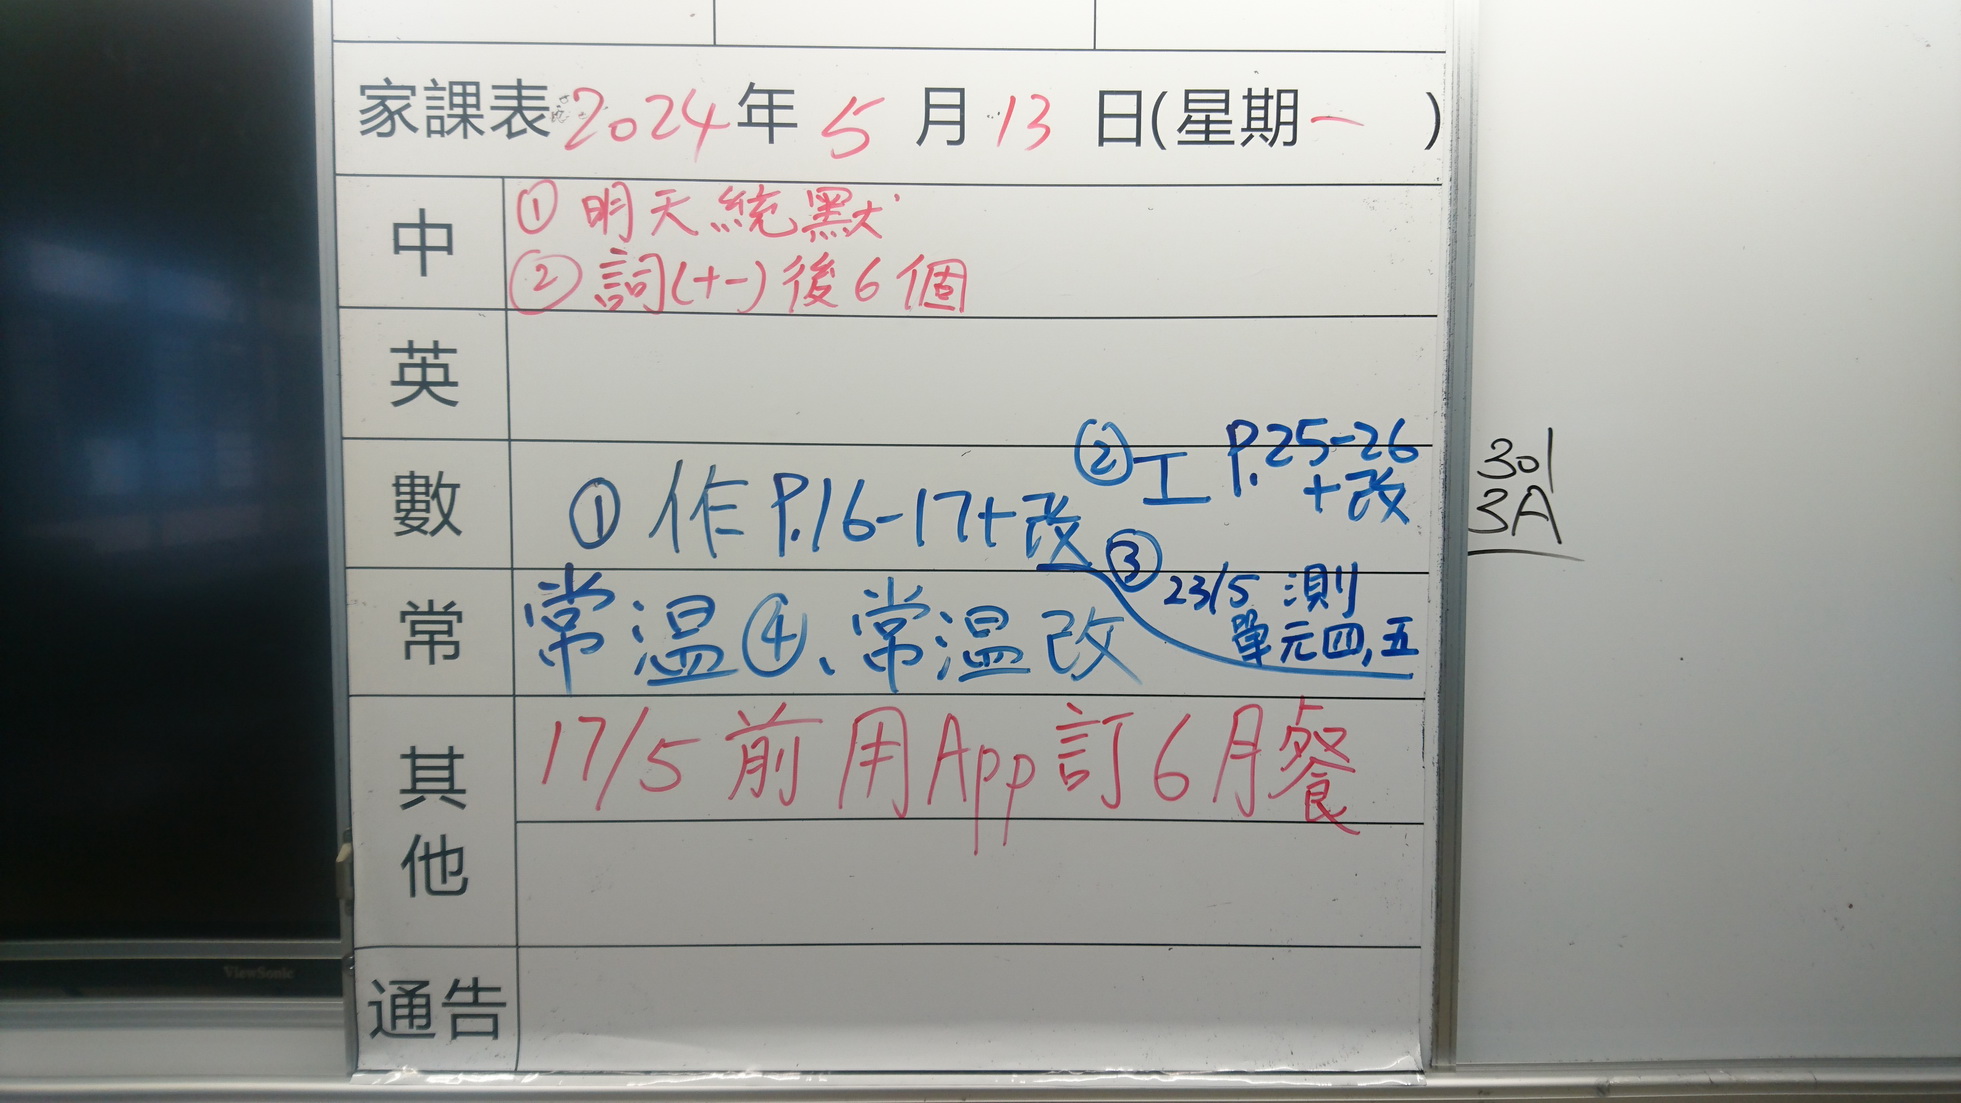 家課表 2024年 5月13日(星期一)
中
① 明天統默
② 詞(十一)後6個
英
數
① 作 P.16-17+改
② 工 P.25-26
+改
③ 23/5 測
單元四,五
常
常温④、常温改
其他
17/5前用App訂6月餐
通告
301
3A
ViewSonic